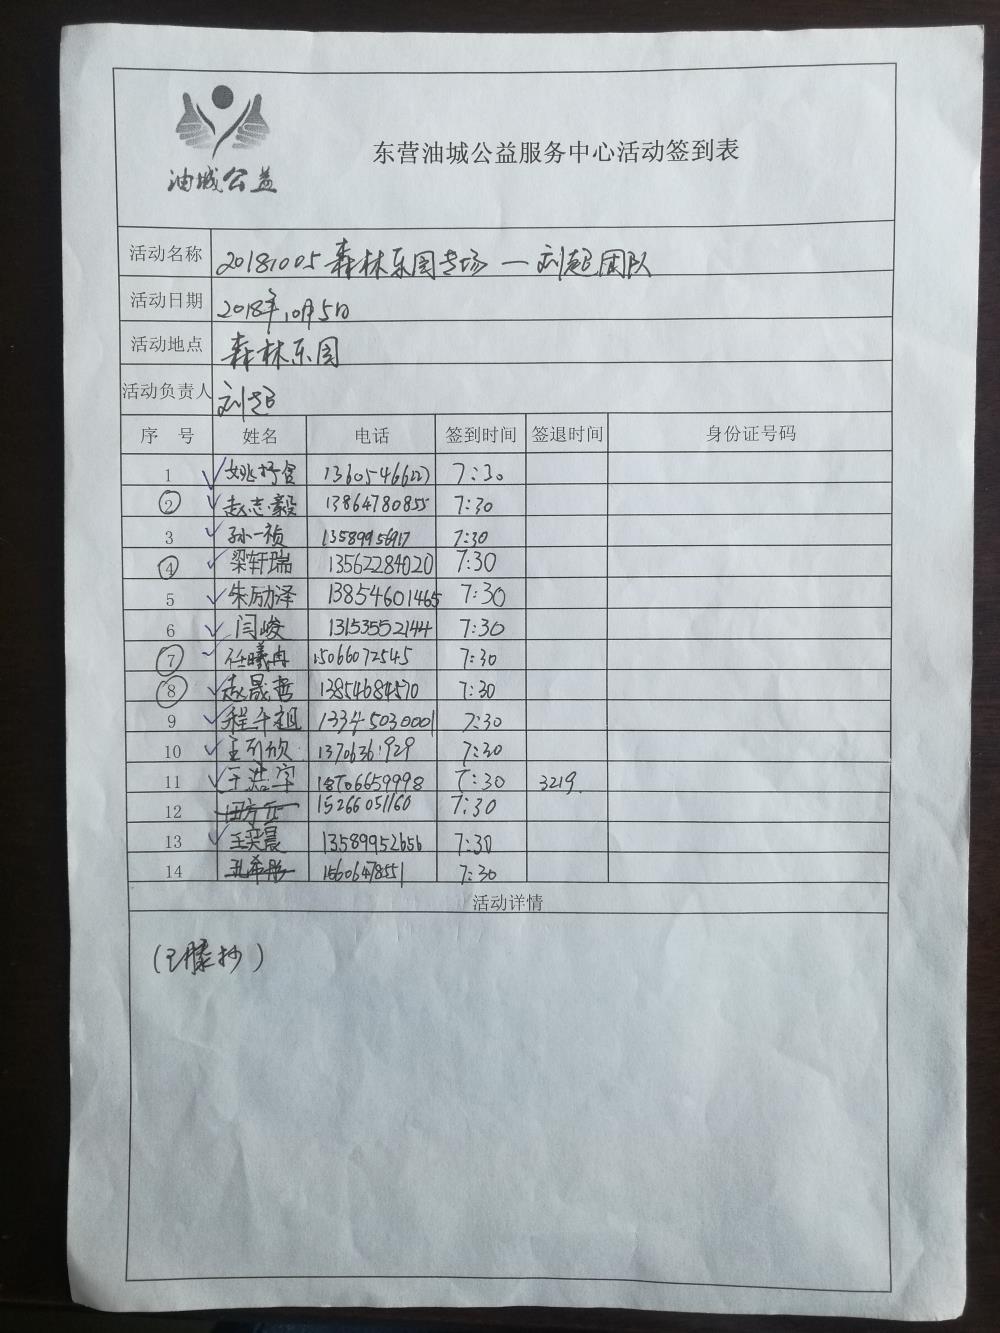 油城公益
东营油城公益服务中心活动签到表
活动名称 20181005森林乐园专场一刘超团队
活动日期 2018年10月5日
活动地点 森林乐园
活动负责人 刘超
序 号 姓名 电话 签到时间 签退时间 身份证号码
1 7:30
2 赵志毅 13864780855 7:30
3 孙一祯 7:30
4 梁轩瑞 13562284020 7:30
5 朱励泽 13854601465 7:30
6 闫峻 13153552144 7:30
7 任曦冉 15066072545 7:30
8 赵晟哲 13854684570 7:30
9 程千祖 13345030001 7:30
10 7:30
11 王浩宇 18706659998 7:30 3219
12 15266051160 7:30
13 王奕晨 13589952656 7:30
14 孔希彤 15606478551 7:30
活动详情